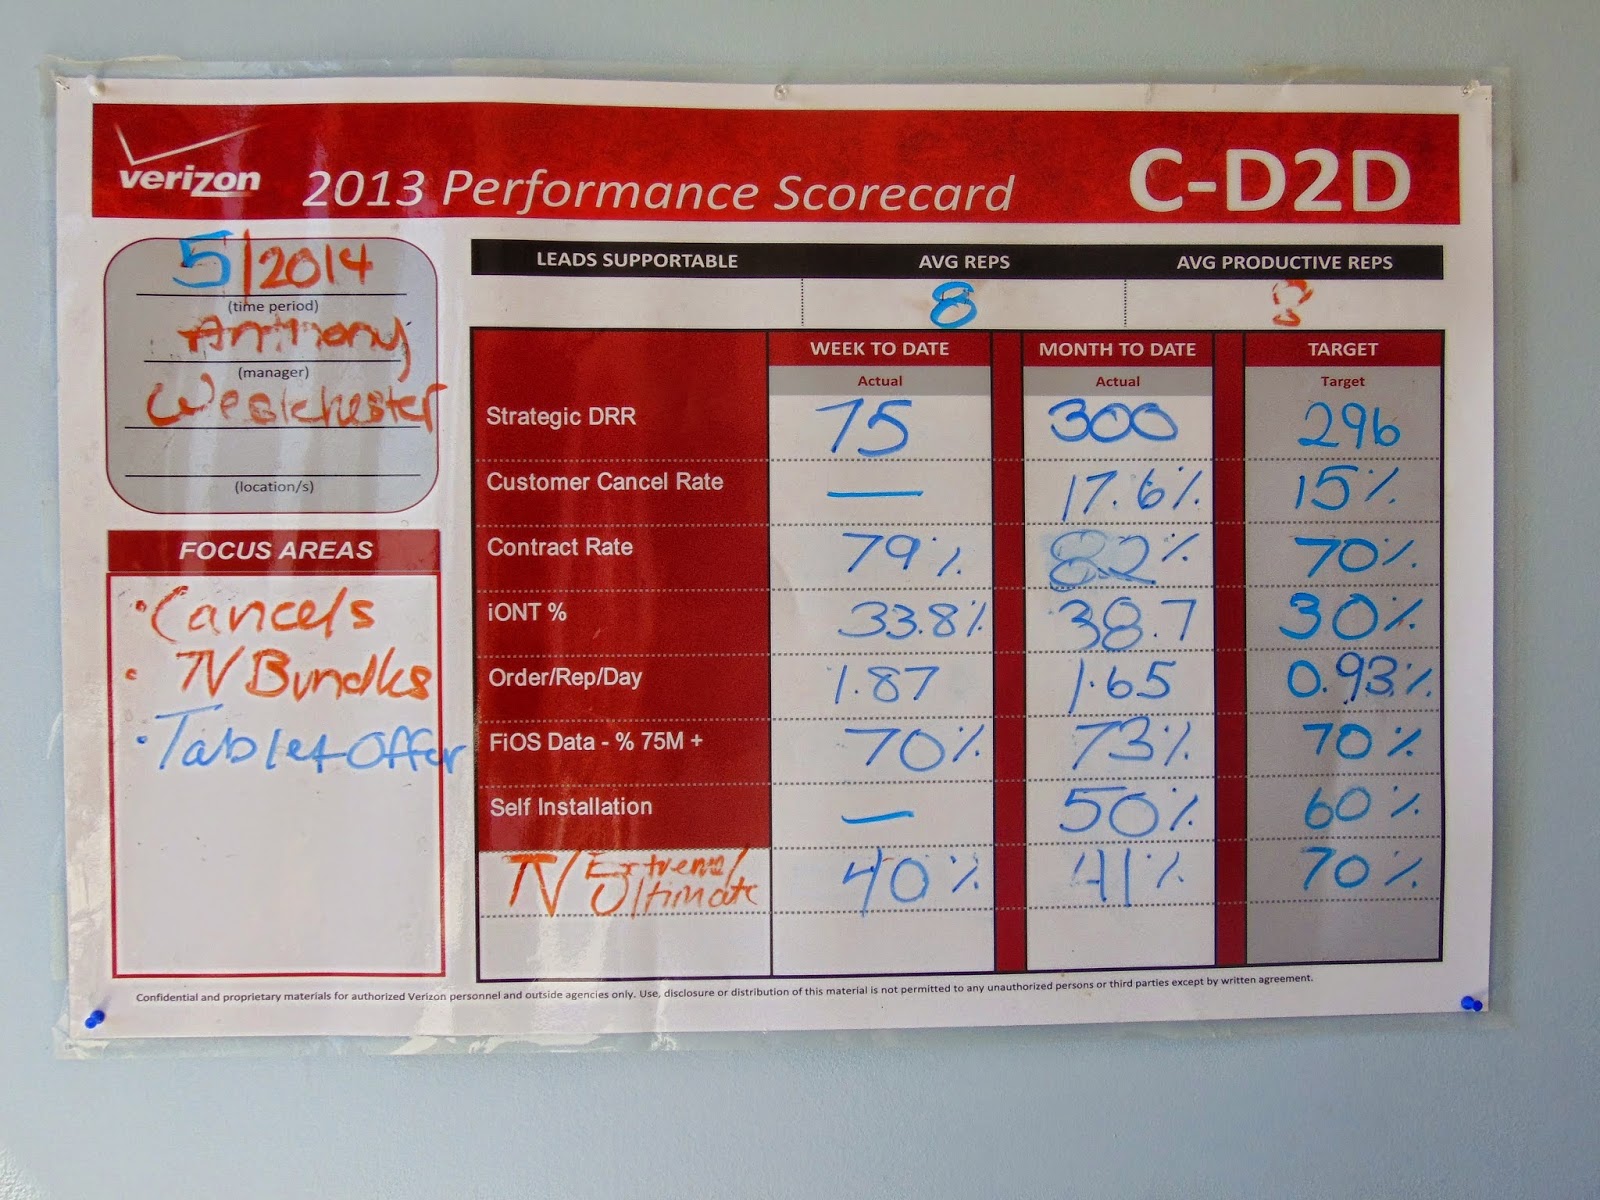 verizon
2013 Performance Scorecard
C-D2D
5/2014
(time period)
Anthony
(manager)
Westchester
(location/s)
FOCUS AREAS
• Cancels
• TV Bundles
• Tablet Offer
LEADS SUPPORTABLE AVG REPS AVG PRODUCTIVE REPS
8 8
WEEK TO DATE MONTH TO DATE TARGET
Actual Actual Target
Strategic DRR 75 300 296
Customer Cancel Rate — 17.6% 15%
Contract Rate 79% 82% 70%
iONT % 33.8% 38.7 30%
Order/Rep/Day 1.87 1.65 0.93%
FiOS Data - % 75M + 70% 73% 70%
Self Installation — 50% 60%
TV Extreme/ 40% 41% 70%
Ultimate
Confidential and proprietary materials for authorized Verizon personnel and outside agencies only. Use, disclosure or distribution of this material is not permitted to any unauthorized persons or third parties except by written agreement.